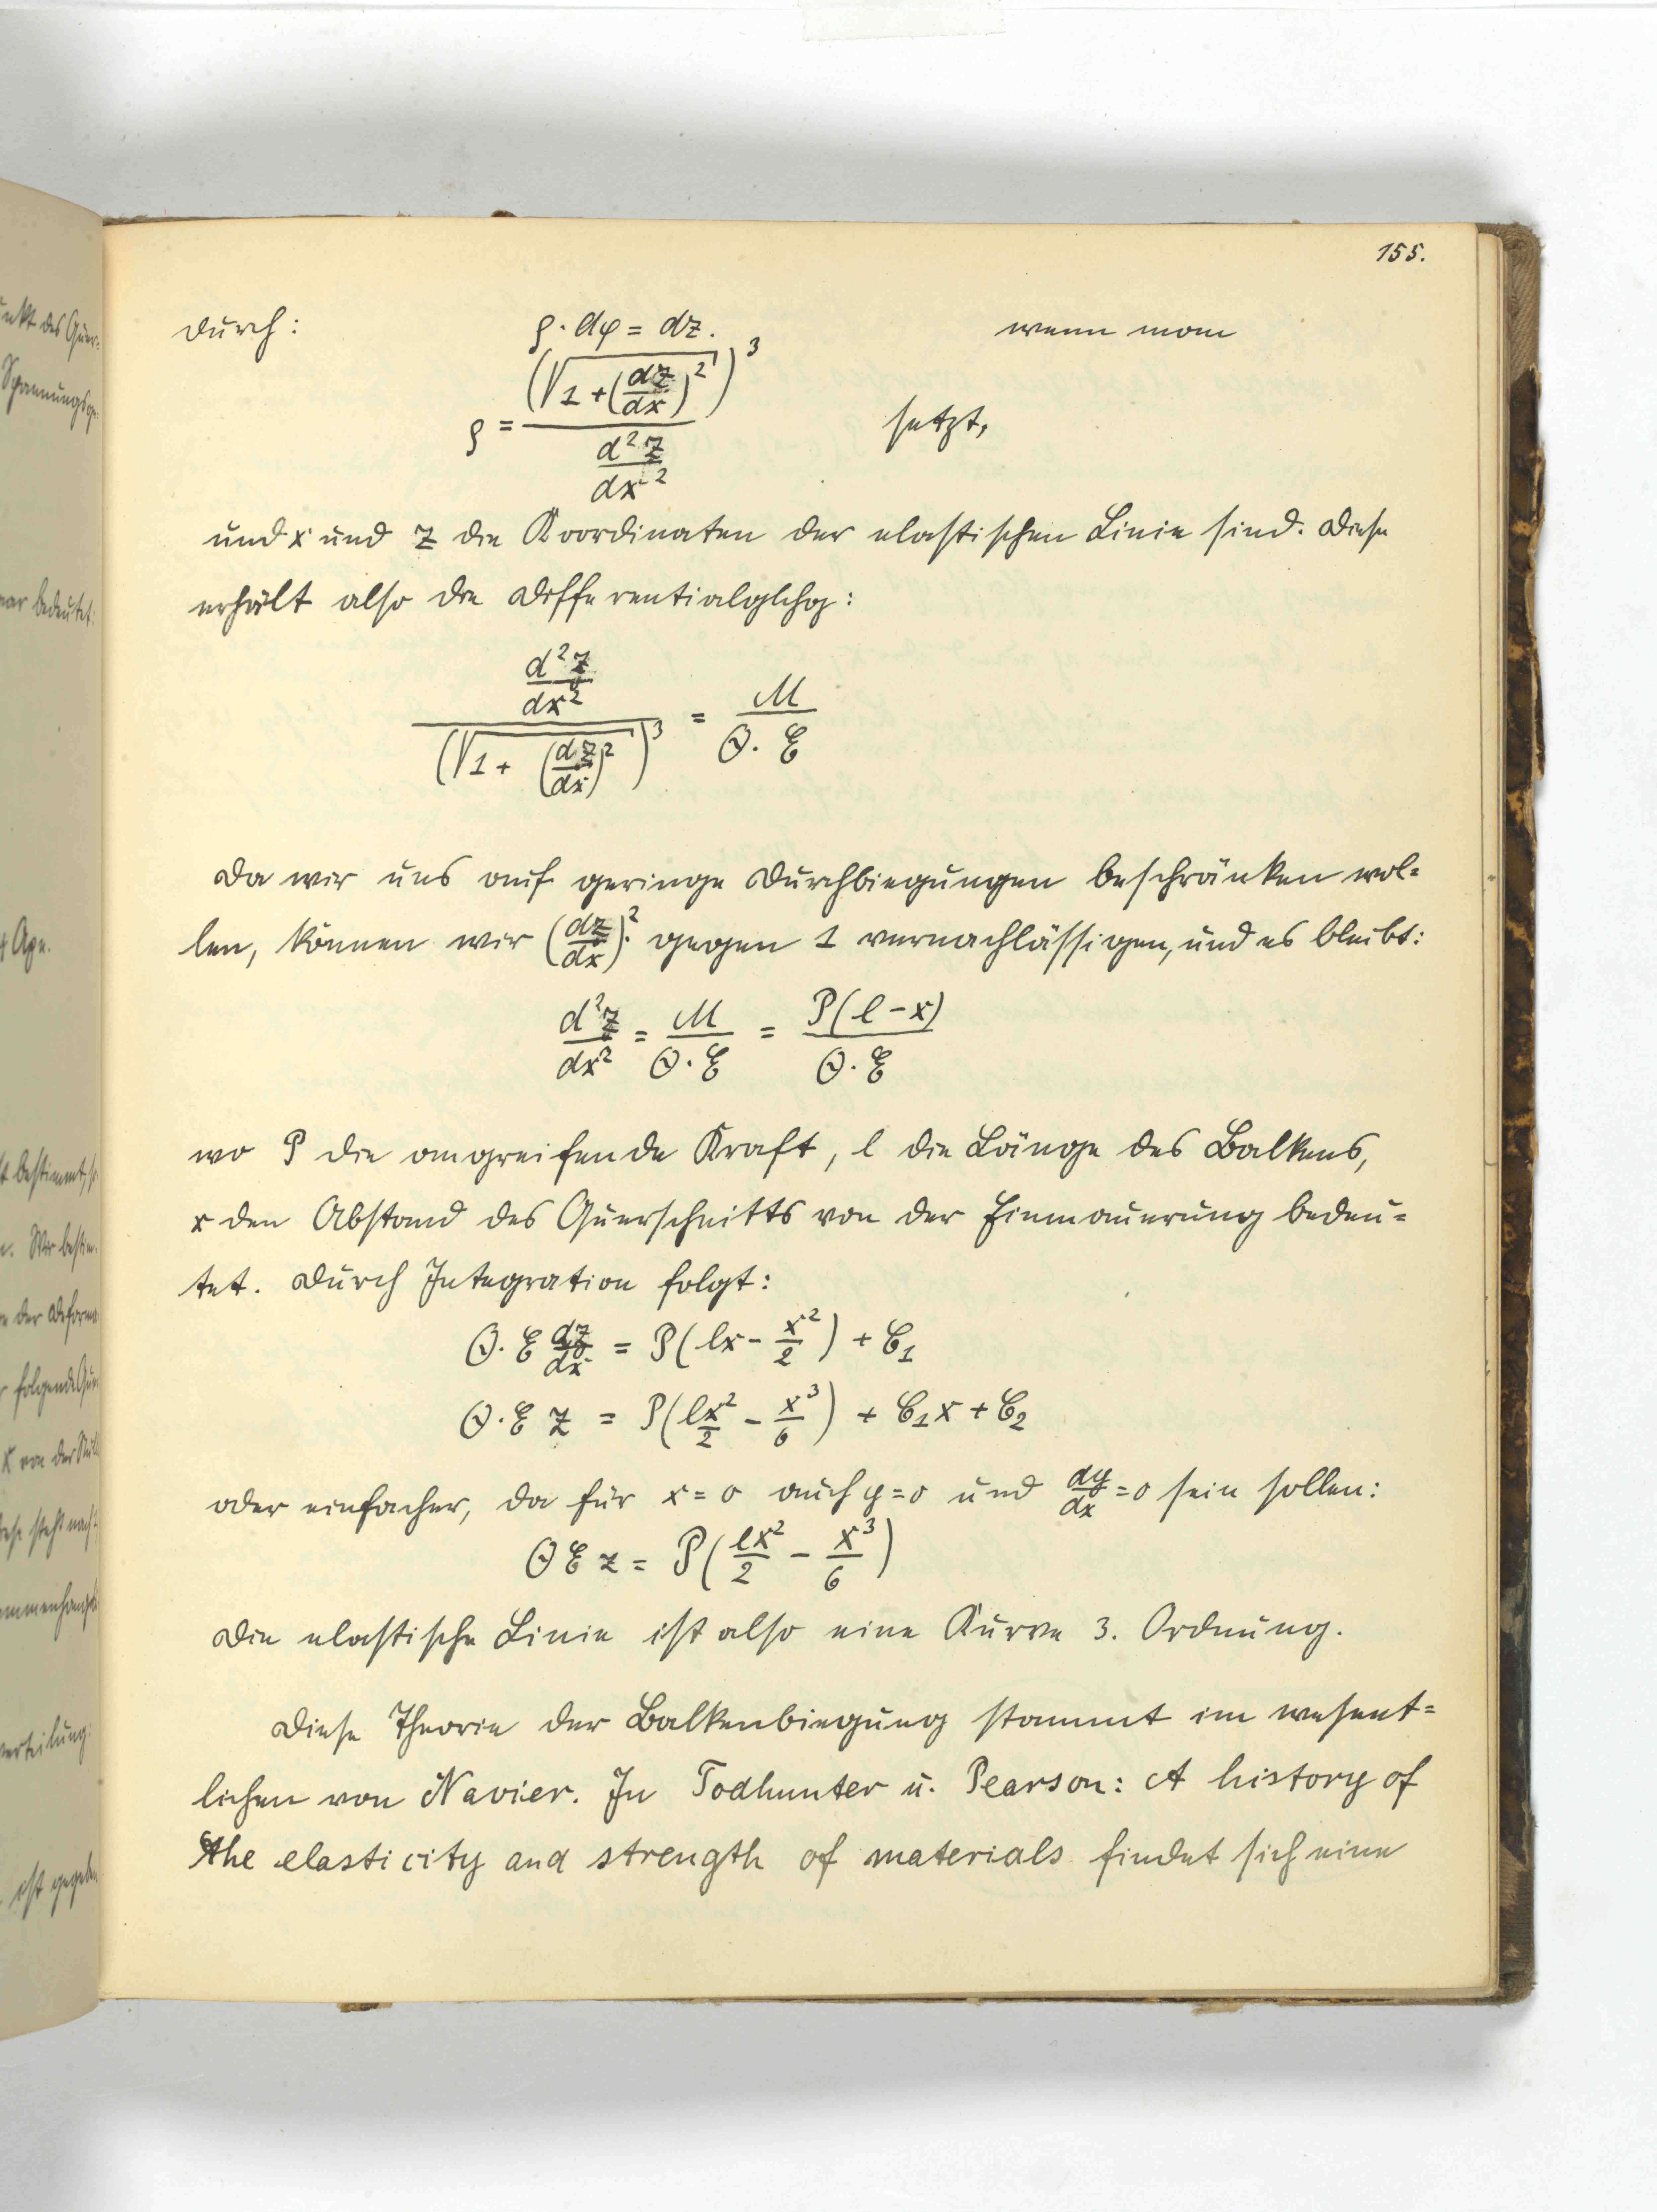 155.
durch: ρ · dφ = dz. wenn man
ρ = (√(1 + (dz/dx)²))³ / (d²z/dx²) setzt,
und x und z die Koordinaten der elastischen Linie sind. Diese
erhält also die Differentialglchg:
(d²z/dx²) / (√(1 + (dz/dx)²))³ = M / (Θ · E)
Da wir uns auf geringe Durchbiegungen beschränken wol=
len, können wir (dz/dx)² gegen 1 vernachlässigen, und es bleibt:
d²z/dx² = M/(Θ · E) = P(l - x)/(Θ · E)
wo P die angreifende Kraft, l die Länge des Balkens,
x den Abstand des Querschnitts von der Einmauerung bedeu=
tet. Durch Integration folgt:
Θ · E dz/dx = P(lx - x²/2) + C₁
Θ · E z = P(lx²/2 - x³/6) + C₁x + C₂
oder einfacher, da für x = 0 auch y = 0 und dy/dx = 0 sein sollen:
Θ E z = P(lx²/2 - x³/6)
Die elastische Linie ist also eine Kurve 3. Ordnung.
Diese Theorie der Balkenbiegung stammt im wesent=
lichen von Navier. In Todhunter u. Pearson: A history of
the elasticity and strength of materials findet sich eine